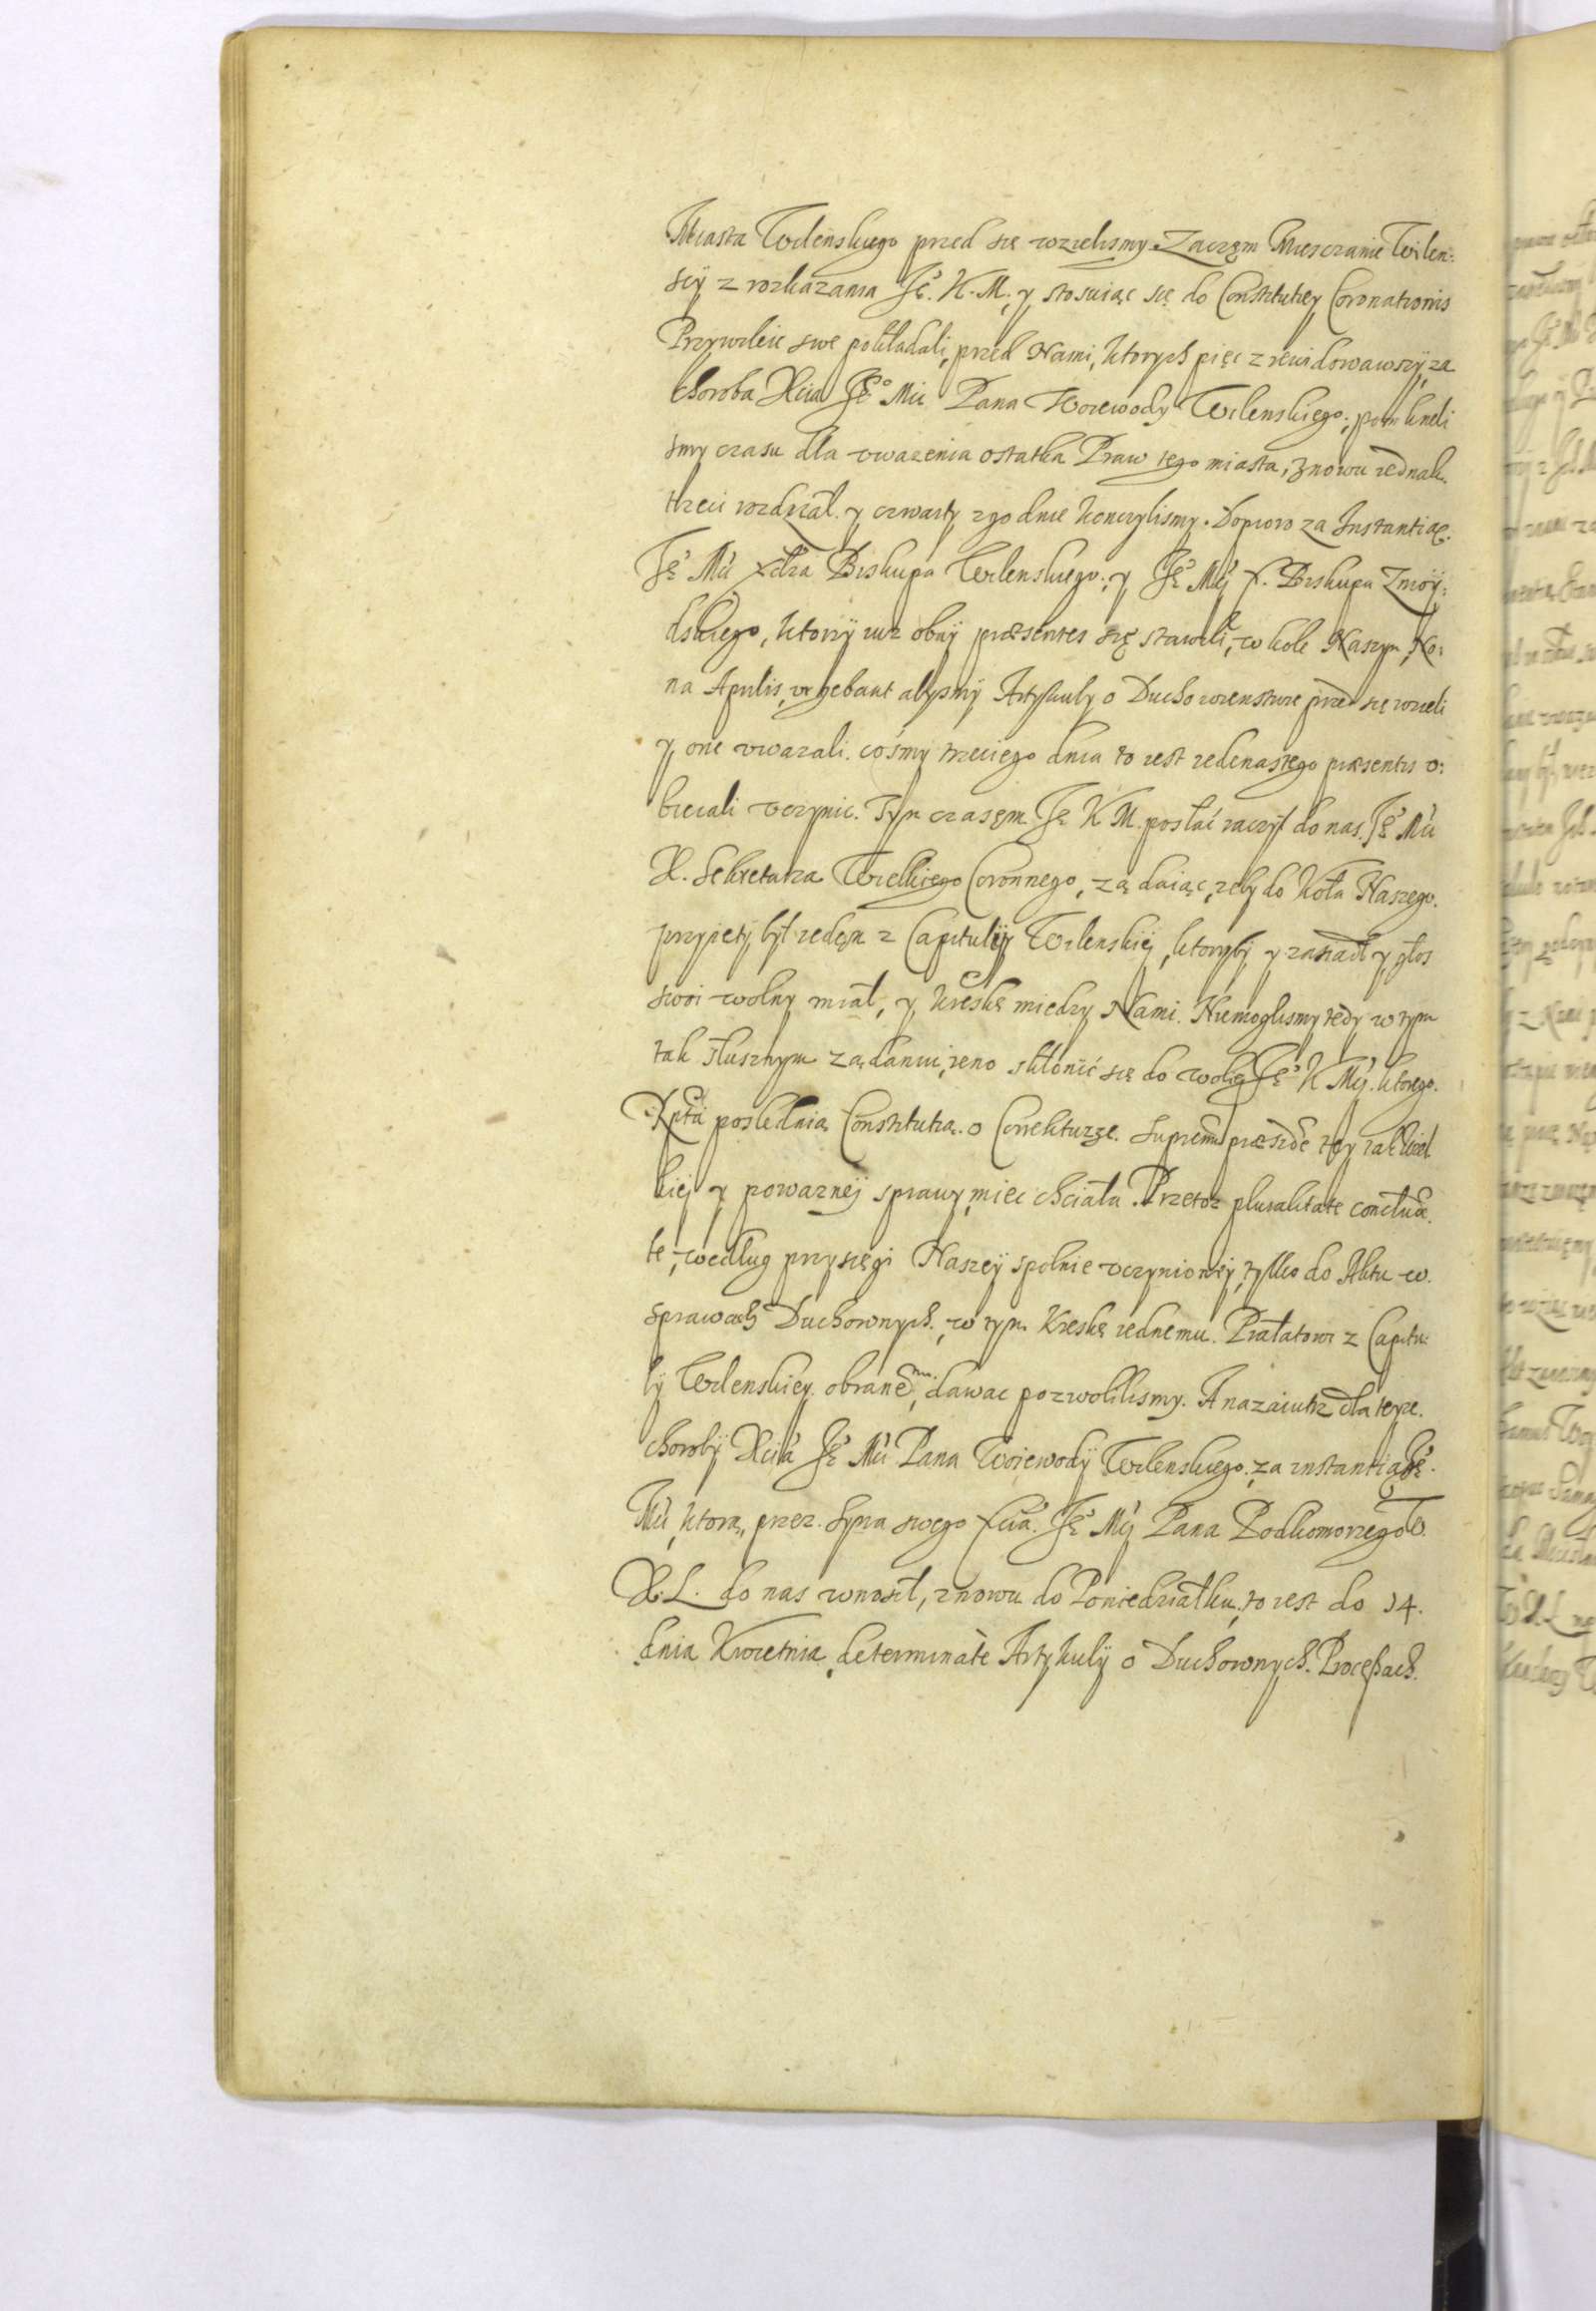 Miasta Wilenskiego przed się wzielismy. Zaczęm Miesczanie Wilen:
scÿ z rozkazania Jeº. K. M. y stosuiąc się do Constitutiey Coronationis
Przywileie swe pokładali, przed Nami, ktorych pięc z rewidowawszÿ, za
choroba Xcia Jeº Mci Pana Woiewody Wilenskiego, pomkneli
smy czasu dla vwazenia ostatka Praw tego miasta, znowu iednak.
trzeci rozdział. y czwarty zgodnie konczylismy. Dopiero za Instantiąę.
Jeº Mci xdza Biskupa Wilenskiego. y Jeº Mci x. Biskupa Zmoÿ:
dskiego, ktorzÿ iuz obaÿ præsentes się stawili, w kole Naszym,
na Aprilis, vrgebant abysmÿ Artykuly o Duchowienstwie przed się wzieli
y one vwazali. cosmy trzeciego dnia to iest iedenastego præsentis o:
biecali vczynic. Tym czasęm Jeº K M. posłać raczył do nas. Jeº Mci
X. Sekretarza Wielkiego Coronnego, ządaiąc, zeby do Koła Naszego.
przyięty był iedęn z Capitulÿ Wilenskiej, ktoryby y zasiadł y głos
swoi wolny miał, y kreskę miedzy Nami. Niemoglismy tedy w tym
tak słusznym ządaniu, ieno skłonić się do woliey Jeº K Mci. ktorego.
poslednia Constitutia. o Correkturze. Supremū præsidē tey tak wiel
kiej y powaznej sprawy, miec chciała. Przetoz pluralitate conclude.
te, według przysięgi Naszeÿ spolnie vczynionej, tylko do Aktu w.
sprawach Duchownych, w tym Kreskę iednemu. Prałatowi z Capitu:
lÿ Wilenskiey. obranemu, dawac pozwolilismy. A nazaiutrz dla teyze.
chorobÿ Xcia Jeº Mci Pana Woiewodÿ Wilenskiego. za instantią Jeº.
Mci, ktorą, przez. Syna swego xcia. Jeº Mci Pana Podkomorzego W.
X. L. do nas wnosił, znowu do Poniedziałku, to iest do 14.
dnia Kwietnia, determinatè Artykulÿ o Duchownych. Procęßach.